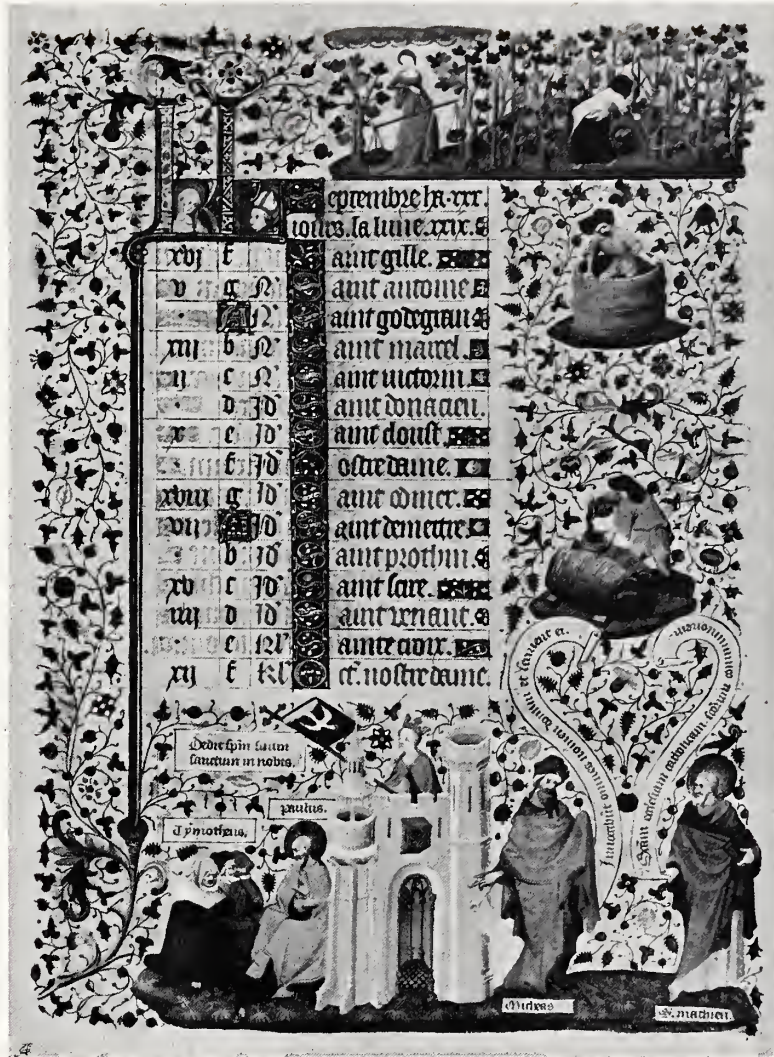 Septembre ha .xxx.
iours. la lune. xxix.
xvj f Saint gille.
v g N Saint antoine
A N Saint godegran
xiij b N Saint marcel.
ij c N Saint victorin.
d Id Saint donacien.
x e Id Saint cloust.
f Id Nostre dame.
xviij g Id Saint omer.
vij A Id Saint demettre.
b Id Saint prothin.
xv c Id Saint sire.
iiij d Id Saint venant.
e Kl Sainte croix.
xij f Kl Oct. nostre dame.
Dedit spm suum
sanctum in nobis.
paulus.
Tymotheus.
Invocabunt omnes nomen domini et servient ei
Sanctam ecclesiam catholicam sanctorum
Micheas
S. mathieu.